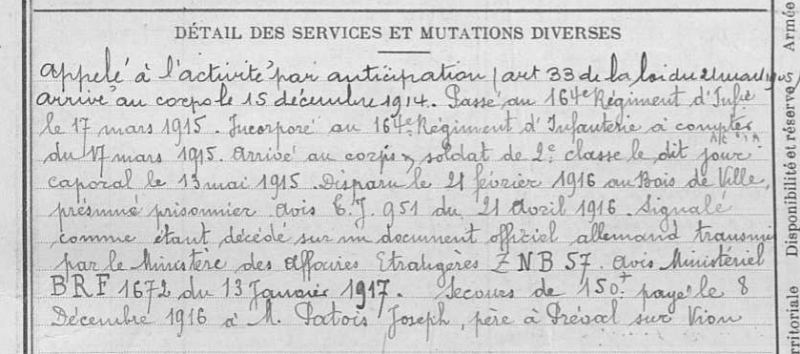 DÉTAIL DES SERVICES ET MUTATIONS DIVERSES
Appelé à l'activité par anticipation (art 33 de la loi du 21 mars 1905)
arrivé au corps le 15 décembre 1914. Passé au 164e Régiment d'Infie
le 17 mars 1915. Incorporé au 164e Régiment d'Infanterie à compter
du 17 mars 1915. Arrivé au corps & soldat de 2e classe le dit jour
caporal le 13 mai 1915. Disparu le 21 février 1916 au Bois de Ville,
présumé prisonnier avis C.J. 951 du 21 Avril 1916. Signalé
comme étant décédé sur un document officiel allemand transmis
par le Ministère des Affaires Etrangères Z N B 57. avis Ministériel
B R F 1672 du 13 Janvier 1917. Secours de 150f payé le 8
Décembre 1916 à M. Patois Joseph, père à Préval sur Vion
Armée
Disponibilité et réserve
rritoriale